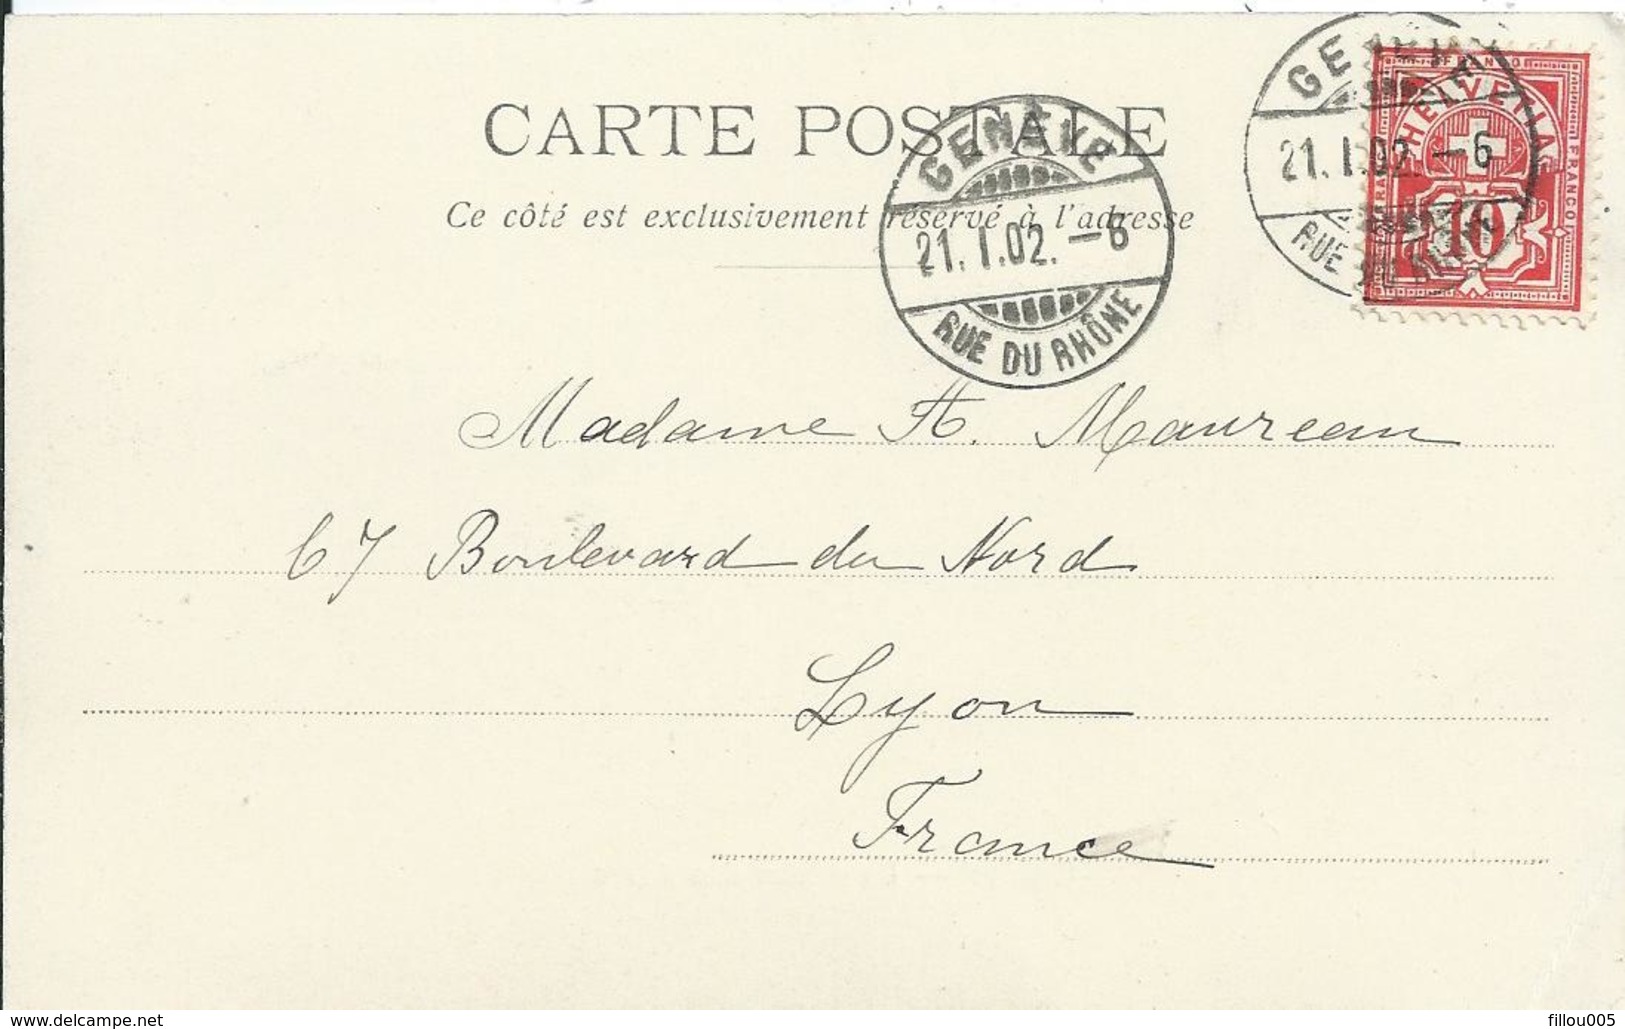 CARTE POSTALE
Ce côté est exclusivement réservé à l'adresse
GENÈVE
21.I.02.-6
RUE DU RHÔNE
GENÈVE
21.I.02.-6
RUE DU RHÔNE
FRANCO
HELVETIA
FRANCO
10
Madame A. Maureau
67 Boulevard du Nord
Lyon
France
www.delcampe.net
fillou005